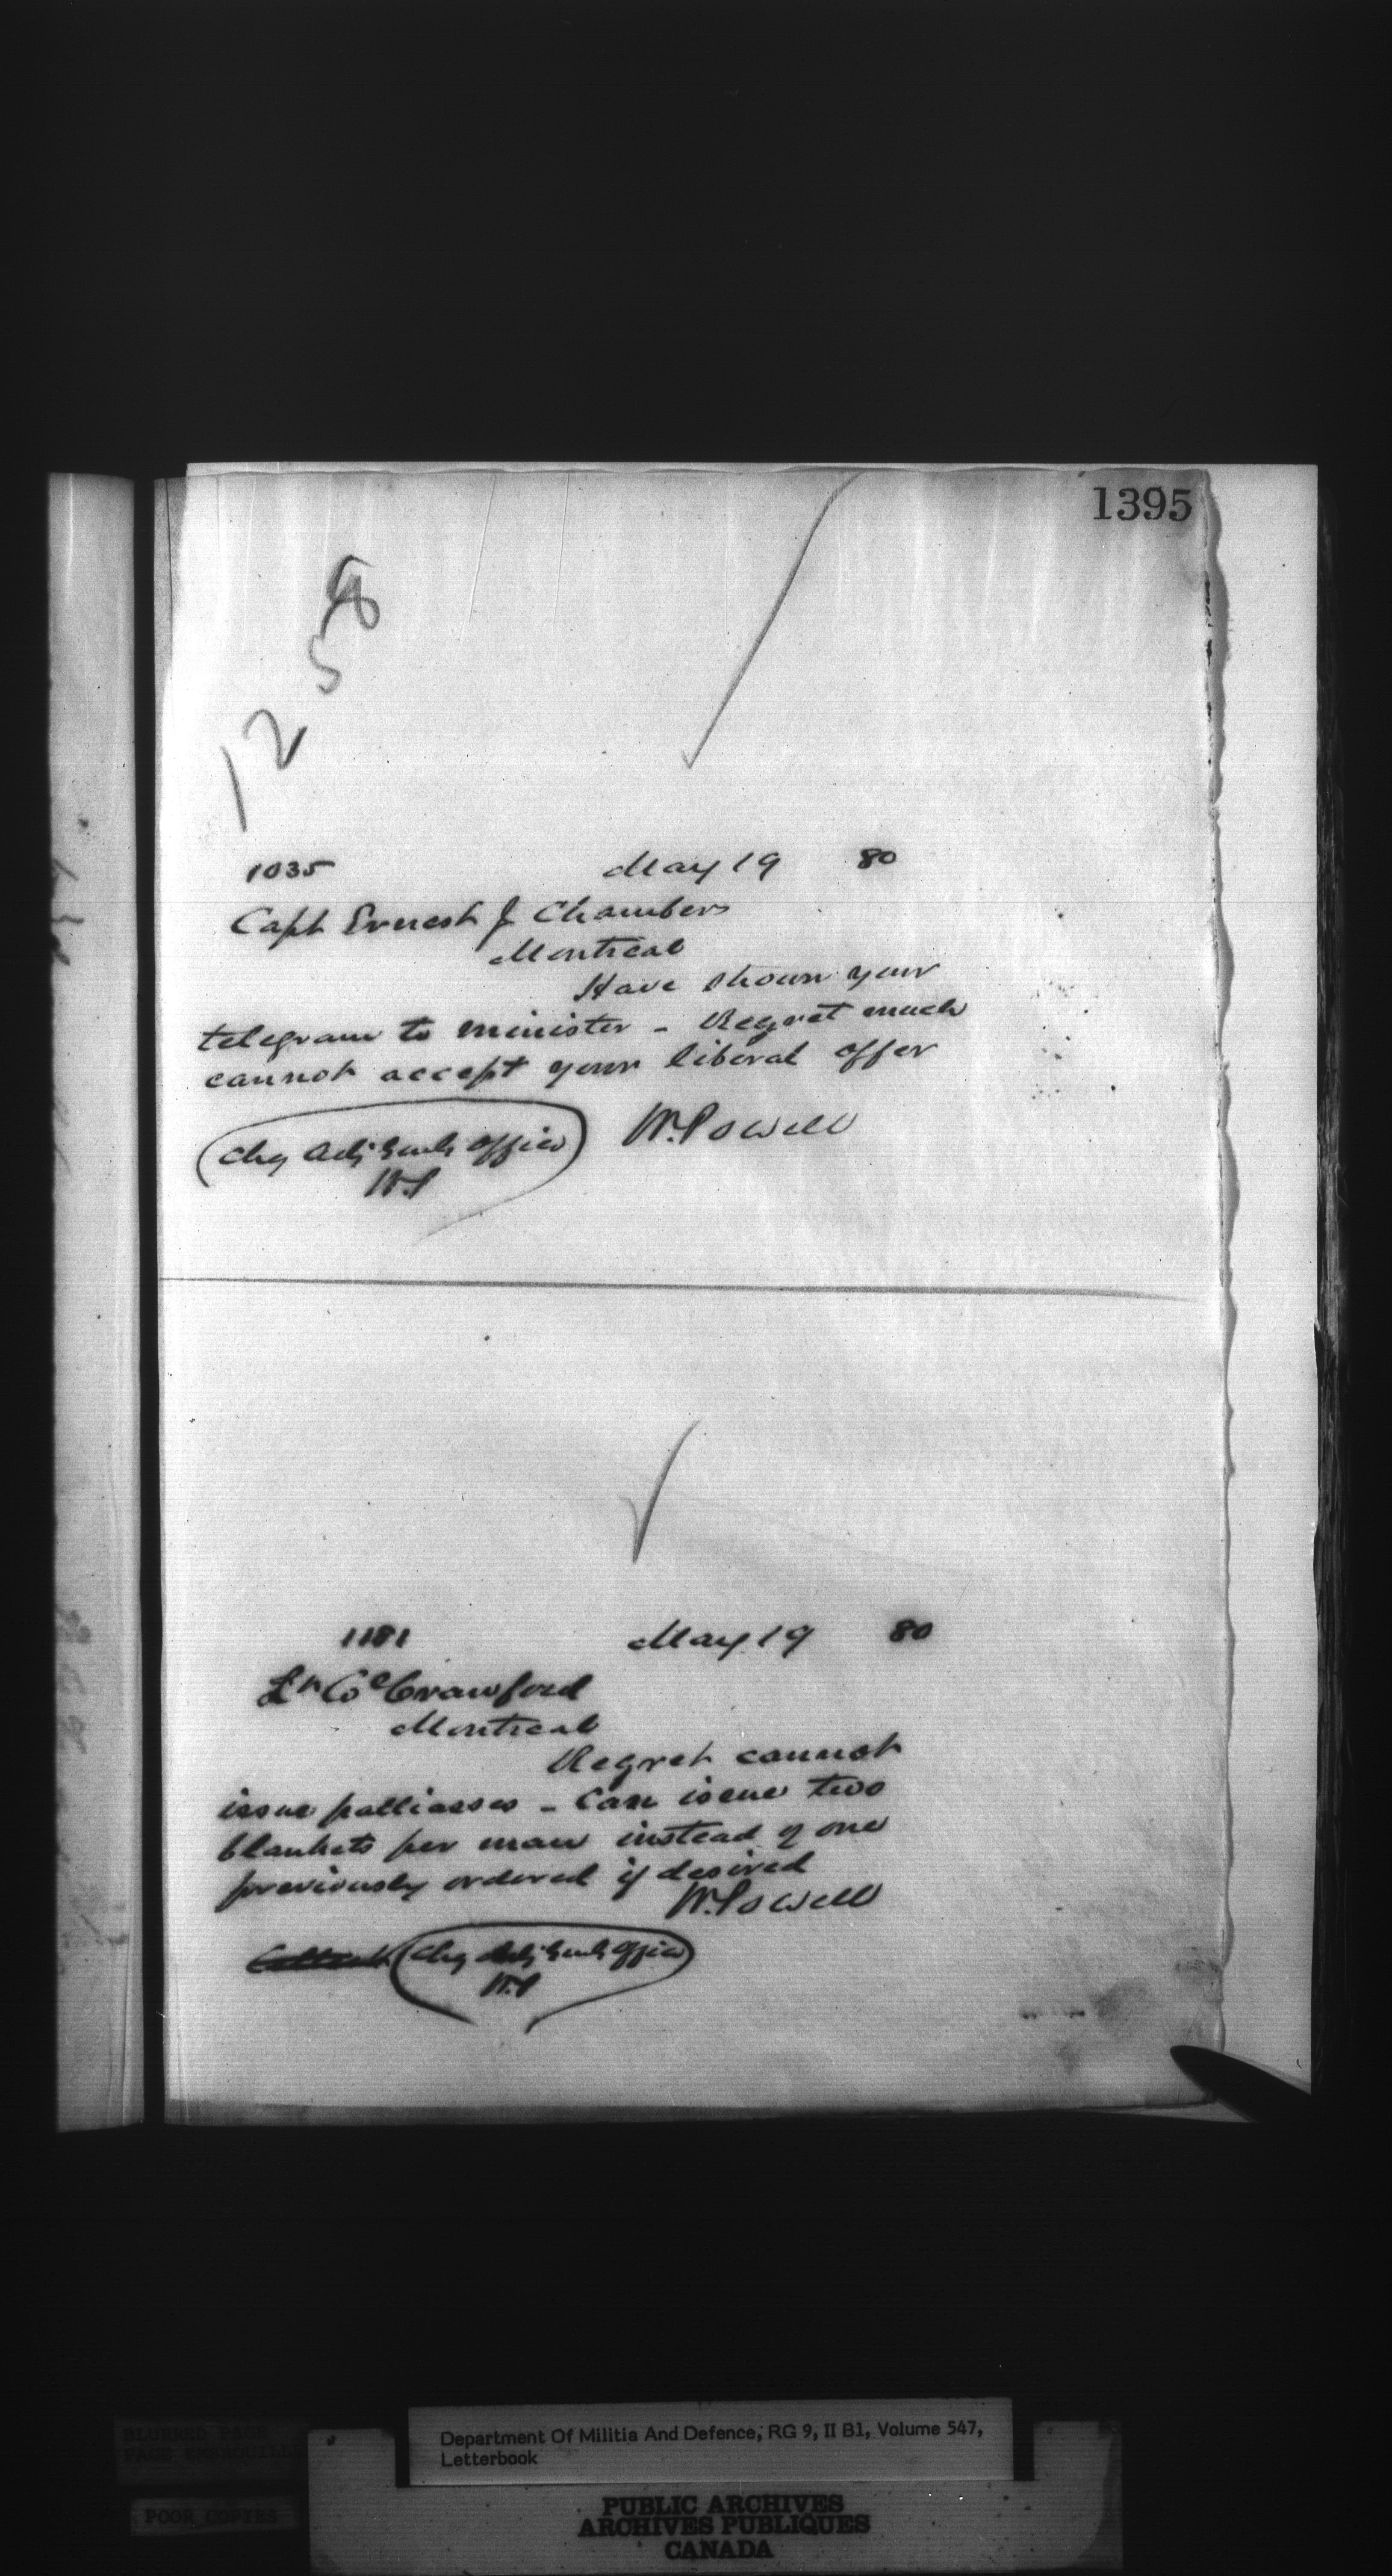 1395
1258
1035 May 19 80
Capt Ernest J Chambers
Montreal
Have shown your
telegram to minister - Regret much
cannot accept your liberal offer
W. Powell
Chg Adj Genls Office
W.P
1181 May 19 80
Lt Col Crawford
Montreal
Regret cannot
issue palliasses - Can issue two
blankets per man instead of one
previously ordered if desired
W. Powell
Chg Adj Genls Office
W.P
BLURRED PAGE
PAGE EMBROUILLE
POOR COPIES
Department Of Militia And Defence, RG 9, II B1, Volume 547,
Letterbook
PUBLIC ARCHIVES
ARCHIVES PUBLIQUES
CANADA